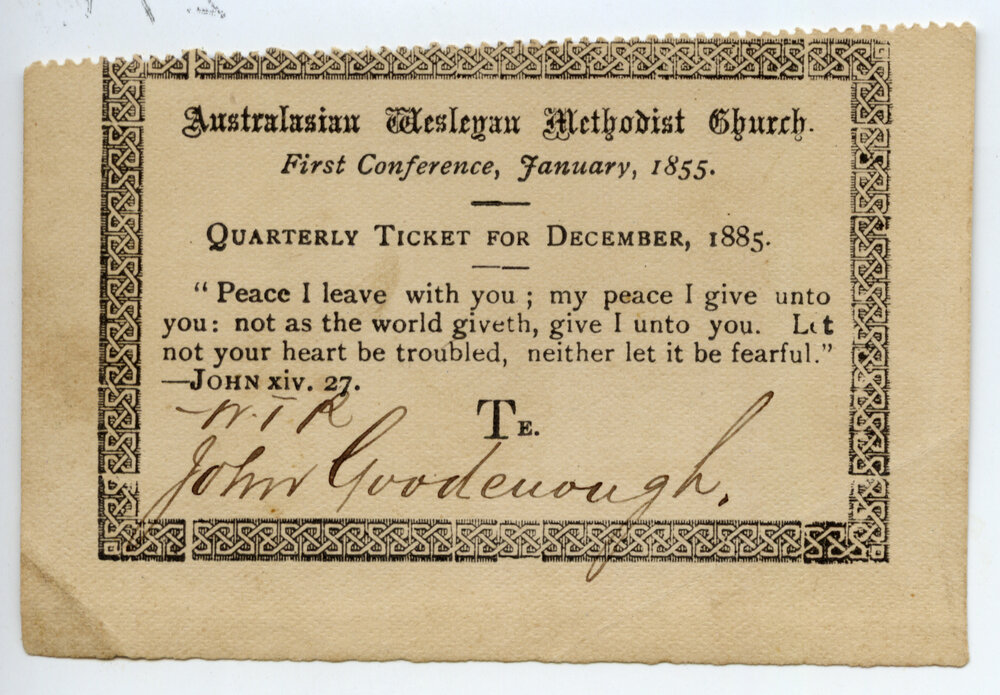 Australasian Wesleyan Methodist Church.
First Conference, January, 1855.
QUARTERLY TICKET FOR DECEMBER, 1885.
“ Peace I leave with you ; my peace I give unto
you: not as the world giveth, give I unto you. Let
not your heart be troubled, neither let it be fearful.”
—JOHN xiv. 27.
TE.
John Goodenough.